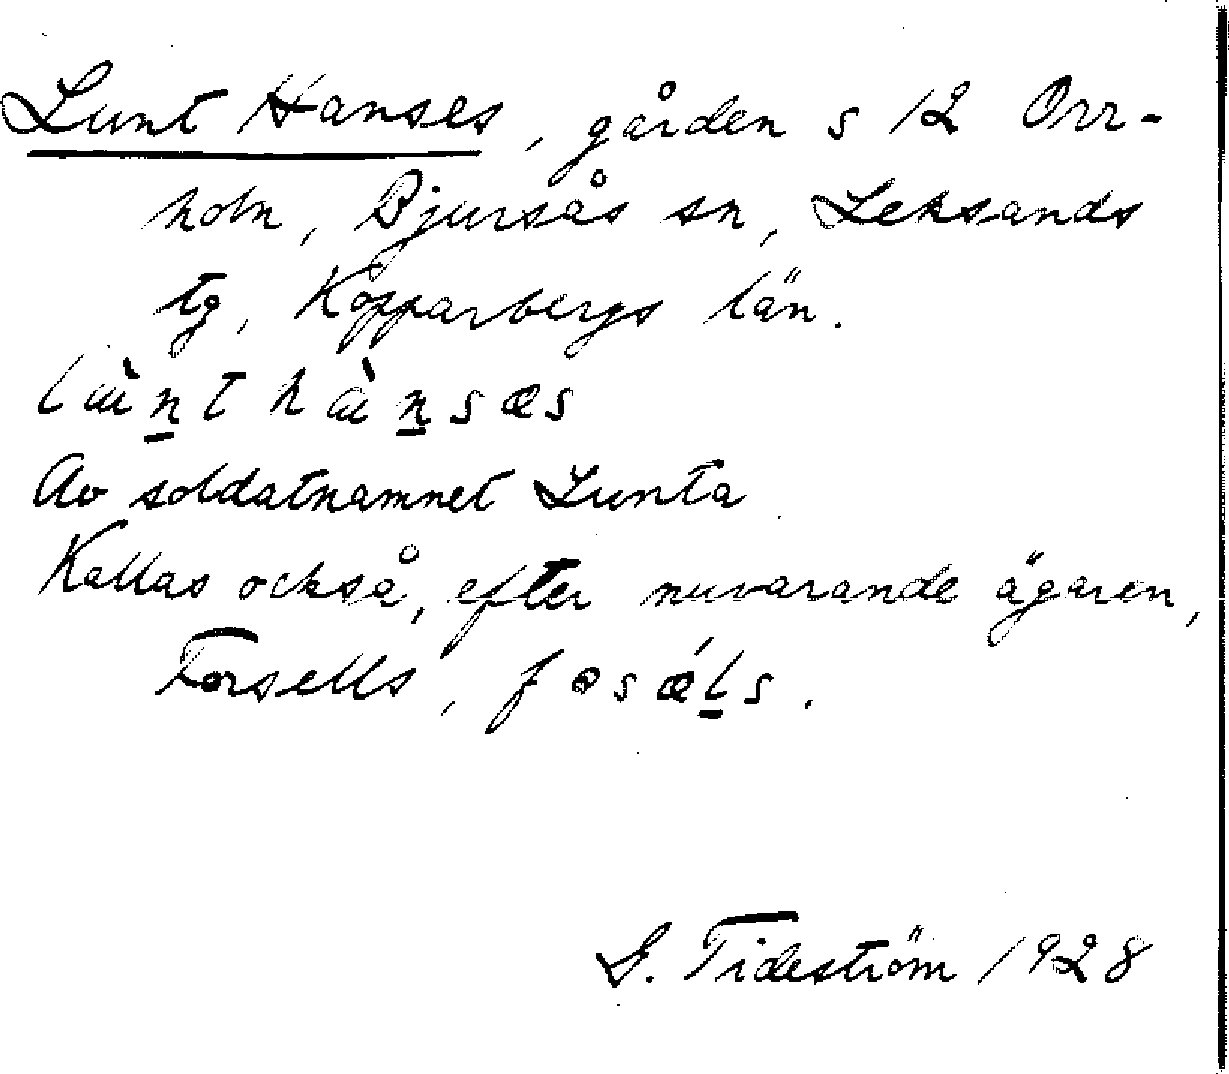 Lunt Hanses, gården s 12 Orr-
holn, Bjursås sn, Leksands
tg, Kopparbergs län.
Av soldatnamnet Lunta
Kallas också, efter nuvarande ägaren,
Forsells, fosǽl̠s.
G. Tideström 1928